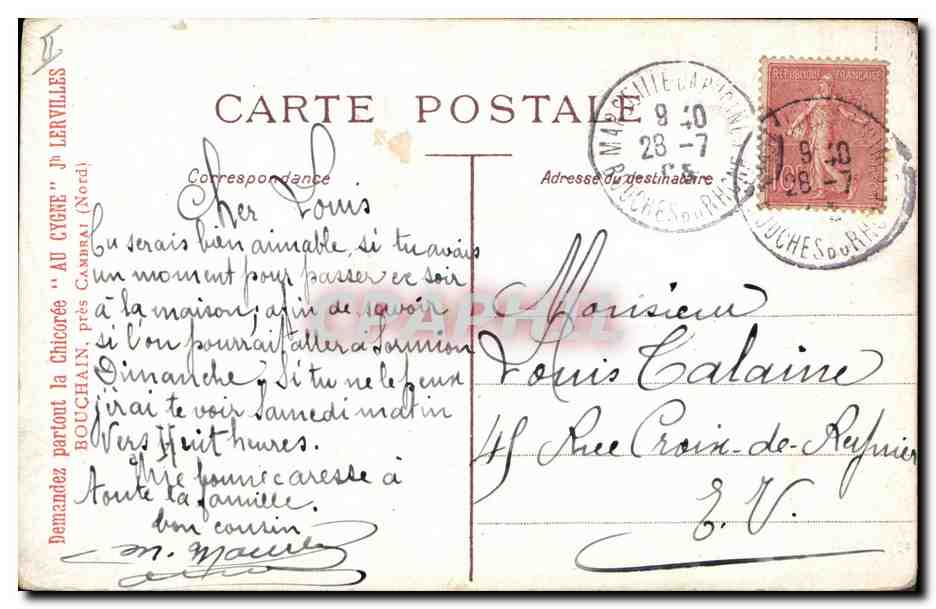 II
Demandez partout la Chicorée "AU CYGNE" Jh LERVILLES
BOUCHAIN, près CAMBRAI (Nord)
CARTE POSTALE
Correspondance
Adresse du destinataire
REPUBLIQUE FRANÇAISE
MARSEILLE CAPUCINE
9 40
28 -7
05
BOUCHES DU RHONE
9 40
28 -7
BOUCHES DU RHONE
Cher Louis
Tu serais bien aimable, si tu avais
un moment pour passer ce soir
à la maison, afin de savoir
si l'on pourrait aller a Sormiou
Dimanche. Si tu ne le peux
j'irai te voir Samedi matin
Vers Huit heures.
Une bonne caresse à
toute la famille.
bon cousin
M.
Monsieur
Louis Talaine
45 Rue Croix-de-Reynier
E. V.
CPAPHIL